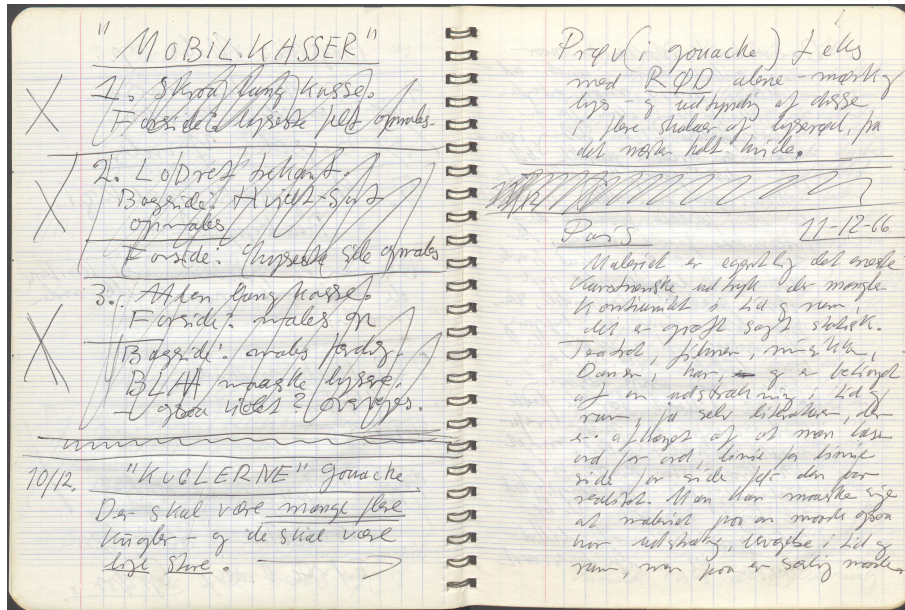 "MOBIL-KASSER"
1. Skraa lang kasse.
Forside: lyseste felt opmales.
2. Lodret trekant.
Bagside: Hvidt-Sort
opmales
Forside: lyseste side opmales
3. Atten lang kasse.
Forside: males op
Bagside: males færdig.
BLAA maaske lysere.
ogsaa violet? Overvejes.
10/12. "KUGLERNE" gouache
Der skal være mange flere
kugler - og de skal være
lige store.
Prøv (i gouache) f.eks
med RØD alene - mørk og
lys - og udtynding af disse
i flere skalaer af lyserød, på
det næsten helt hvide.
Paris 11-12-66
Maleriet er egentlig det eneste
kunstneriske udtryk der mangler
kontinuitet i tid og rum,
det er groft sagt statisk.
Teatret, filmen, musikken,
Dansen, har, og er betinget
af en udstrækning i tid og
rum, ja selv literaturen, der
er afhængt af at man læser
ord for ord, linie for linie
side for side før den før
realitet. Man kan maaske sige
at maleriet paa en maade ogsaa
har udstrækning, bevægelse i tid og
rum, men paa en særlig maade.